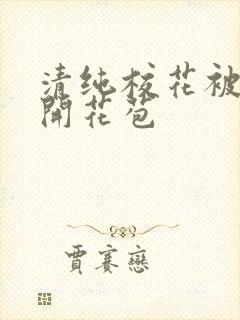 清纯校花被
開花苞
賈賽戀